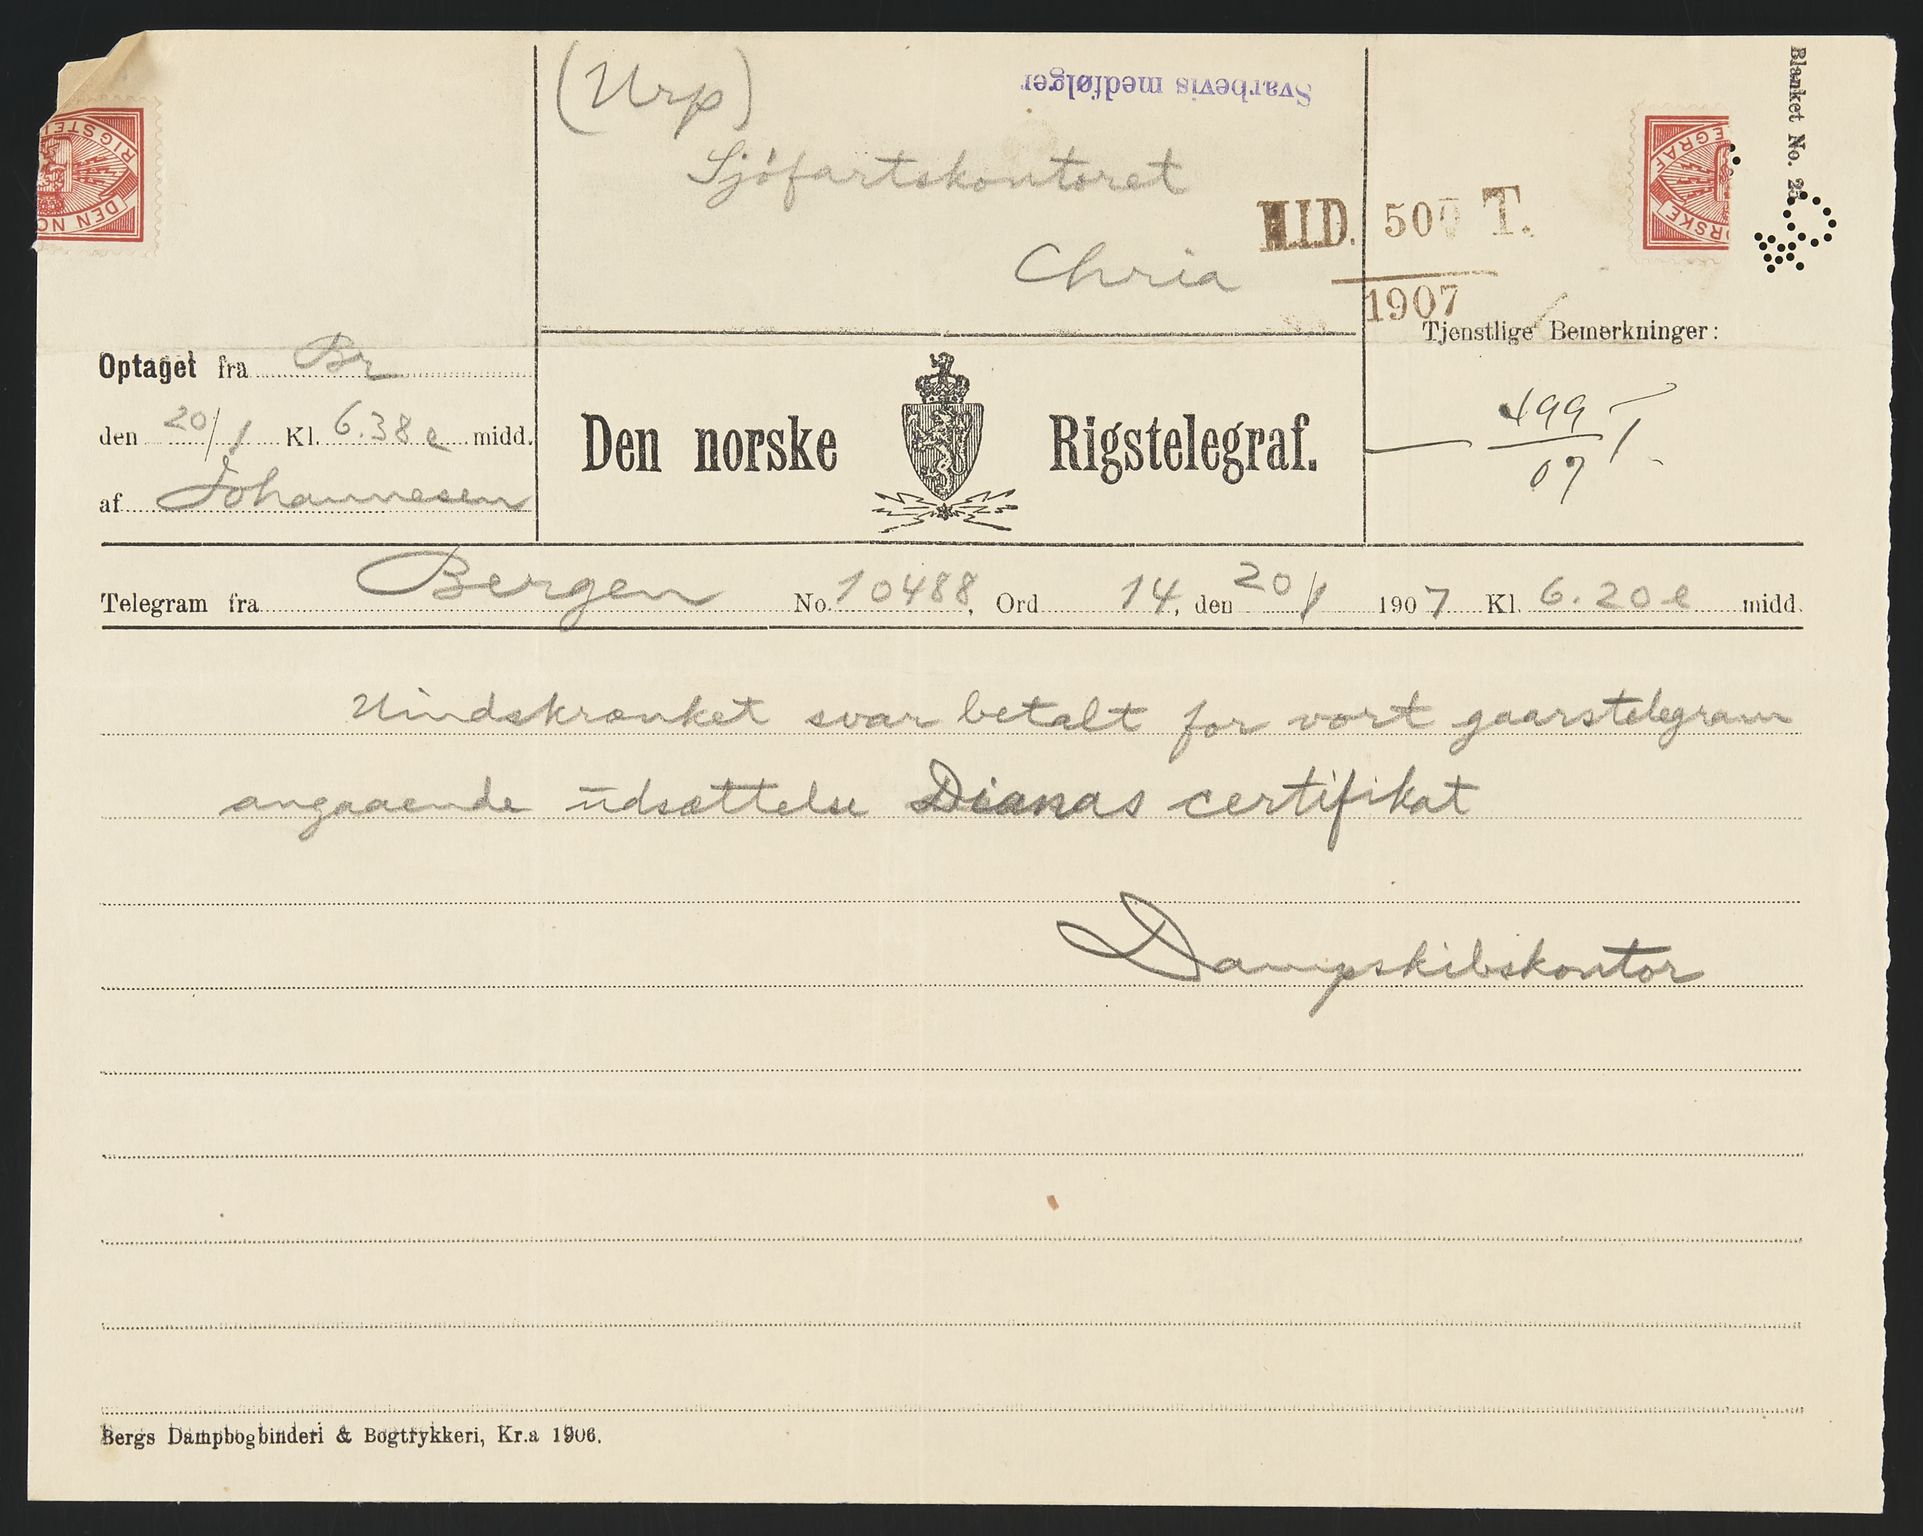 Blanket No. 25.
(Urp)
Svarbevis medfølger
Sjöfartskontoret
Chria
H.I.D. 500 T.
1907
DEN NO
RIGSTEL
ORSKE
EGRAF
Optaget fra Br
den 20/1 Kl. 6.38 e midd.
af Johannesen
Den norske Rigstelegraf.
Tjenstlige Bemerkninger:
499 T.
07
Telegram fra Bergen No. 10488, Ord 14, den 20/1 1907 Kl. 6.20 e midd.
Uindskrænket svar betalt for vort gaarstelegram
angaaende udsættelse Dianas certifikat
Dampskibskontor
Bergs Dampbogbinderi & Bogtrykkeri, Kr.a 1906.